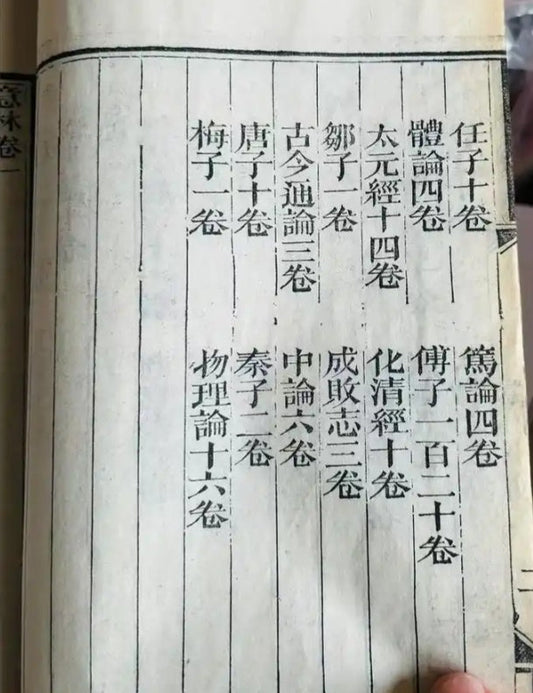 任子十卷
篤論四卷
體論四卷
傅子一百二十卷
太元經十四卷
化清經十卷
鄒子一卷
成敗志三卷
古今通論三卷
中論六卷
唐子十卷
秦子二卷
梅子一卷
物理論十六卷
意林卷一